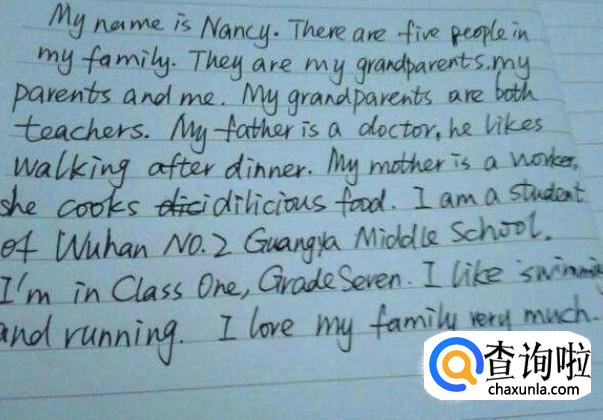 My name is Nancy. There are five people in
my family. They are my grandparents. my
parents and me. My grandparents are both
teachers. My father is a doctor, he likes
walking after dinner. My mother is a worker,
she cooks dici dilicious food. I am a student
of Wuhan NO.2 Guangya Middle School.
I'm in Class One, Grade Seven. I like swimmin
and running. I love my family very much.
查询啦
chaxunla.com